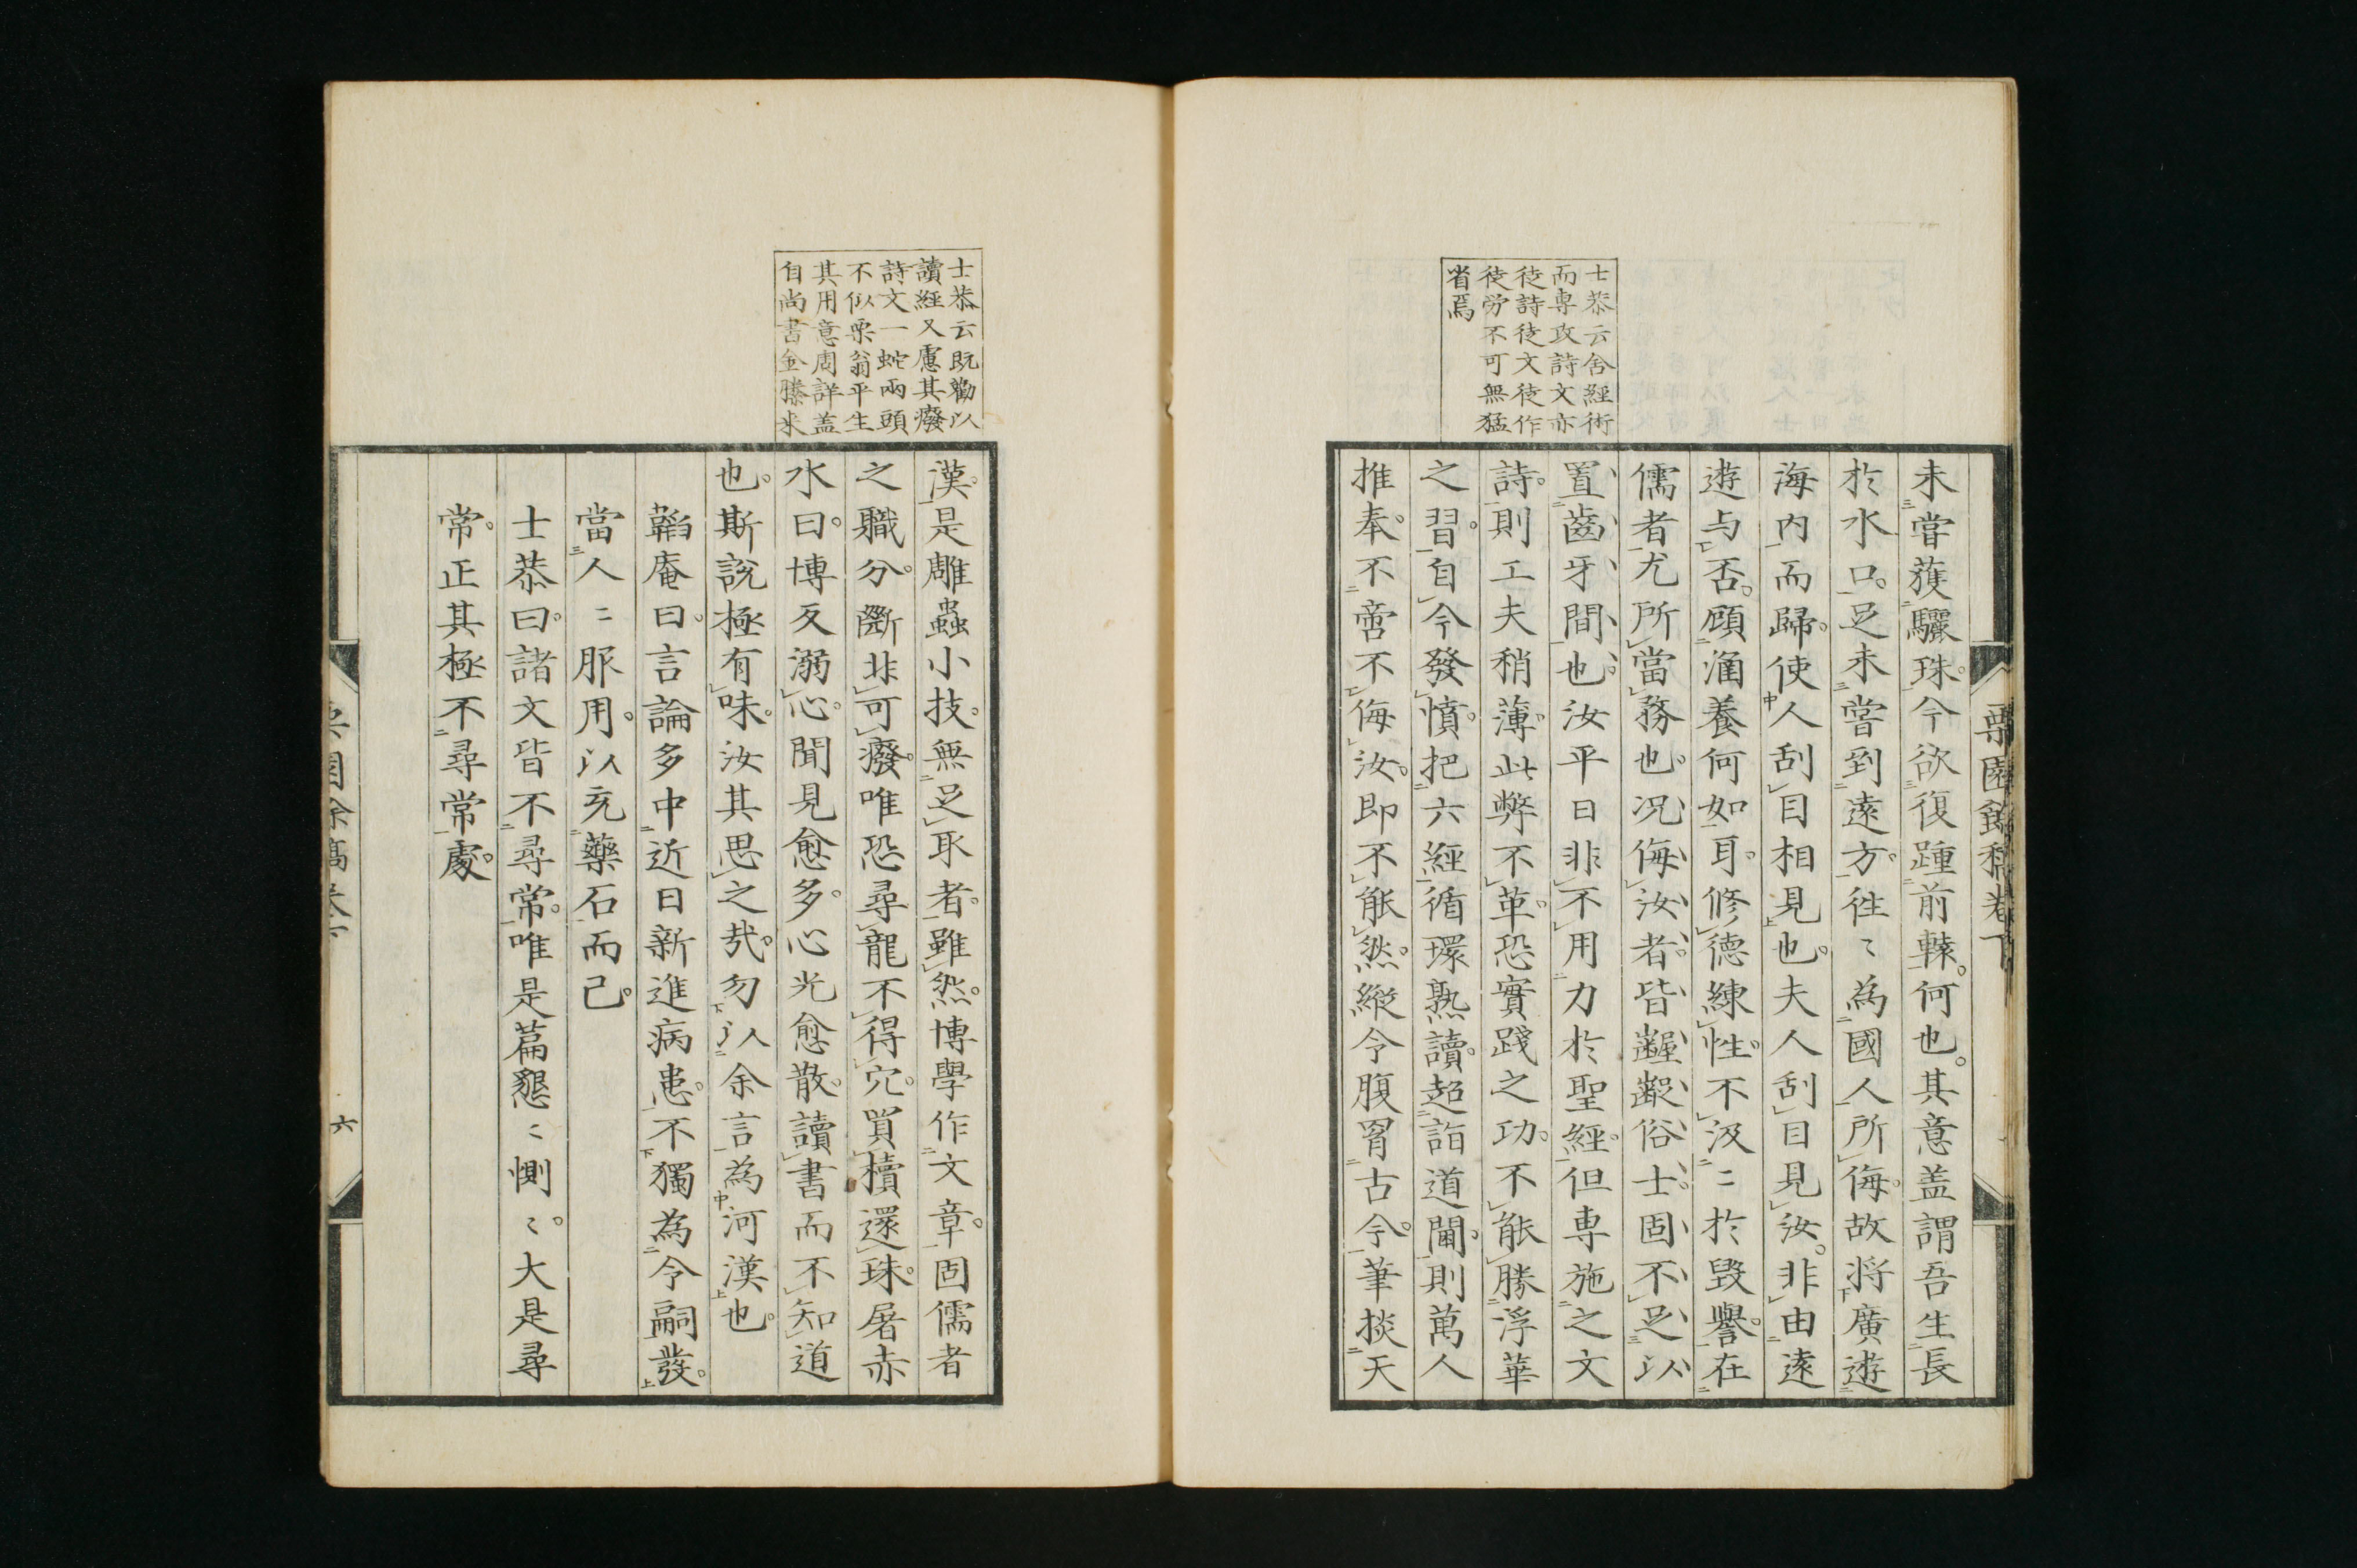 栗園餘稿卷下
士恭云舍經術
而専攻詩文亦
徒詩徒文徒作
徒労不可無猛
省焉
未嘗獲驪珠。今欲復踵前轅。何也。其意盖謂吾生長
於水口。足未嘗到遠方。徃〻為國人所侮。故将廣遊
海内而歸。使人刮目相見也。夫人刮目見汝。非由遠
遊与否。顧涵養何如耳。修德練性。不汲〻於毀譽。在
儒者尤所當務也。况侮汝者、皆齷齪俗士、固不足以
置齒牙間也。汝平日非不用力於聖經。但専施之文
詩。則工夫稍薄。此弊不革。恐實踐之功。不能勝浮華
之習。自今發憤。把六經循環熟讀。超詣道閫。則萬人
推奉。不啻不侮汝。即不能然。縱令腹胷古今。筆掞天
士恭云既勸以
讀經又慮其癈
詩文一蛇兩頭
不似栗翁平生
其用意周詳盖
自尚書金縢来
漢。是雕蟲小技。無足取者。雖然。博學作文章。固儒者
之職分。斷非可癈。唯恐尋龍不得穴。買櫝還珠。屠赤
水曰。博反溺心。聞見愈多。心光愈散。讀書而不知道
也。斯說極有味。汝其思之哉。勿以余言為河漢也。
韜庵曰。言論多中近日新進病患。不獨為令嗣發。
當人〻服用。以充藥石而己。
士恭曰。諸文皆不尋常。唯是篇懇〻惻〻。大是尋
常。正其極不尋常處。
六